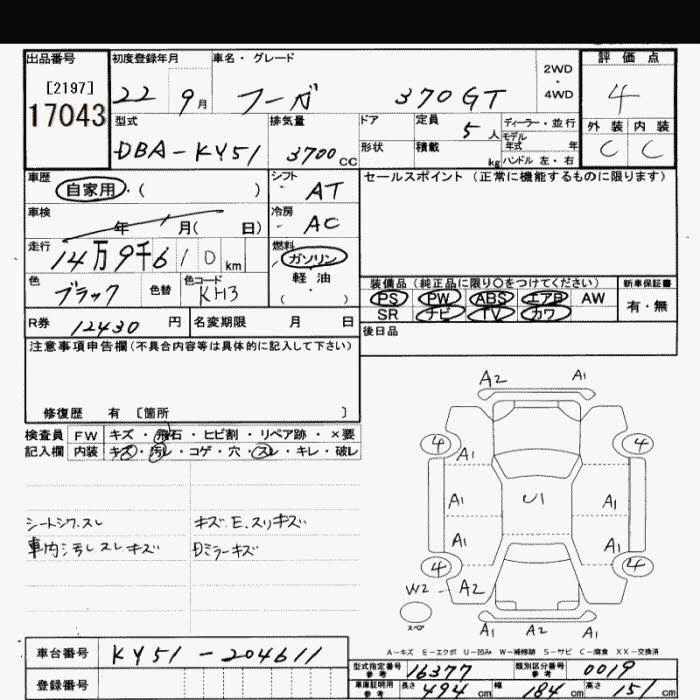 出品番号 初度登録年月 車名・グレード 2WD・4WD 評価点
[2197]
17043 22 9月 フーガ 370GT 4
型式 排気量 ドア 定員 5人 ディーラー・並行 外装 内装
モデル年式 年
DBA-KY51 3700CC 形状 積載 kg ハンドル 左・右 C C
車歴 自家用・( ) シフト AT セールスポイント(正常に機能するものに限ります)
車検 年 月( 日) 冷房 AC
走行 14万9千610km 燃料 ガソリン
軽油
・( )
色 ブラック 色替 色コード KH3
装備品(純正品に限り○をつけてください) 新車保証書
PS PW ABS エアB AW 有・無
SR ナビ TV カワ
R券 12430円 名変期限 月 日 後日品
注意事項申告欄(不具合内容等は具体的に記入して下さい)
修復歴 有 〔箇所 〕
検査員 FW キズ・飛石・ヒビ割・リペア跡・×要
記入欄 内装 キズ・汚レ・コゲ・穴・スレ・キレ・破レ
シートシワ.スレ キズ.E.スリキズ
車内汚レスレキズ Dミラーキズ
A2 A1
4 A1 4
A1 U1 A1
A1 A1
4 4
W2 A2
スペア
A1 A2 A1
A-キズ E-エクボ U-凹み W-補修跡 S-サビ C-腐食 XX-交換済
車台番号 KY51-204611
型式指定番号 参考 16377 類別区分番号 参考 0019
登録番号 車庫証明用 参考 長さ 494cm 幅 184cm 高さ 151cm